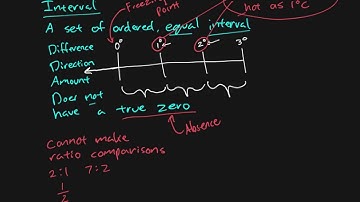 Interval
Freezing
point
hot as 1°c
A set of ordered, equal interval
Difference
0° 1° 2° 3°
Direction
Amount
Does not
have a true zero
Absence
Cannot make
ratio comparisons
2:1 7:2
1
2